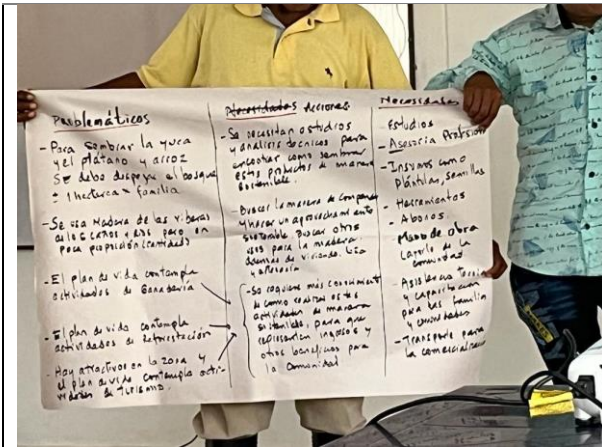 Problemáticos
- Para sembrar la yuca
y el plátano y arroz
se debe despejar el bosque
± 1 hectarea = familia
- Se usa Madera de las riberas
de los caños y rios pero en
poca proporción (cantidad)
- El plan de vida contempla
actividades de Ganadería
- El plan de vida contempla
actividades de reforestación
- Hay atractivos en la zona y
el plan de vida contempla acti-
vidades de turismo.
Necesidades Acciones
- Se necesitan estudios
y analisis tecnicos para
encontrar como sembrar
estos productos de manera
sostenible.
- Buscar la manera de
y hacer un aprovechamiento
sostenible. Buscar otros
usos para la madera
además de vivienda
y artesanía
- Se requiere más conocimiento
de como realizar estas
actividades de manera
sostenible, para que
representen ingresos y
otros beneficios para
la comunidad
Necesidades
- Estudios
- Asesoria
- Insumos como
Plántulas, semillas
- Herramientas
- Abonos.
- Mano de obra
de la
comunidad
- Asistencia
y capacitación
para las familias
y comunidades
- Transporte para
la comercialización